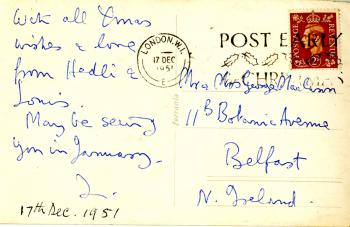 With all Xmas
wishes & love
from Hedli &
Louis.
May be seeing
you in January.
L.
17th Dec. 1951
LONDON.W.1.
17 DEC
1951
E
POST EARLY
FOR CHRISTMAS
POSTAGE
REVENUE
Mr & Mrs George MacCann
11B Botanic Avenue
Belfast
N. Ireland.